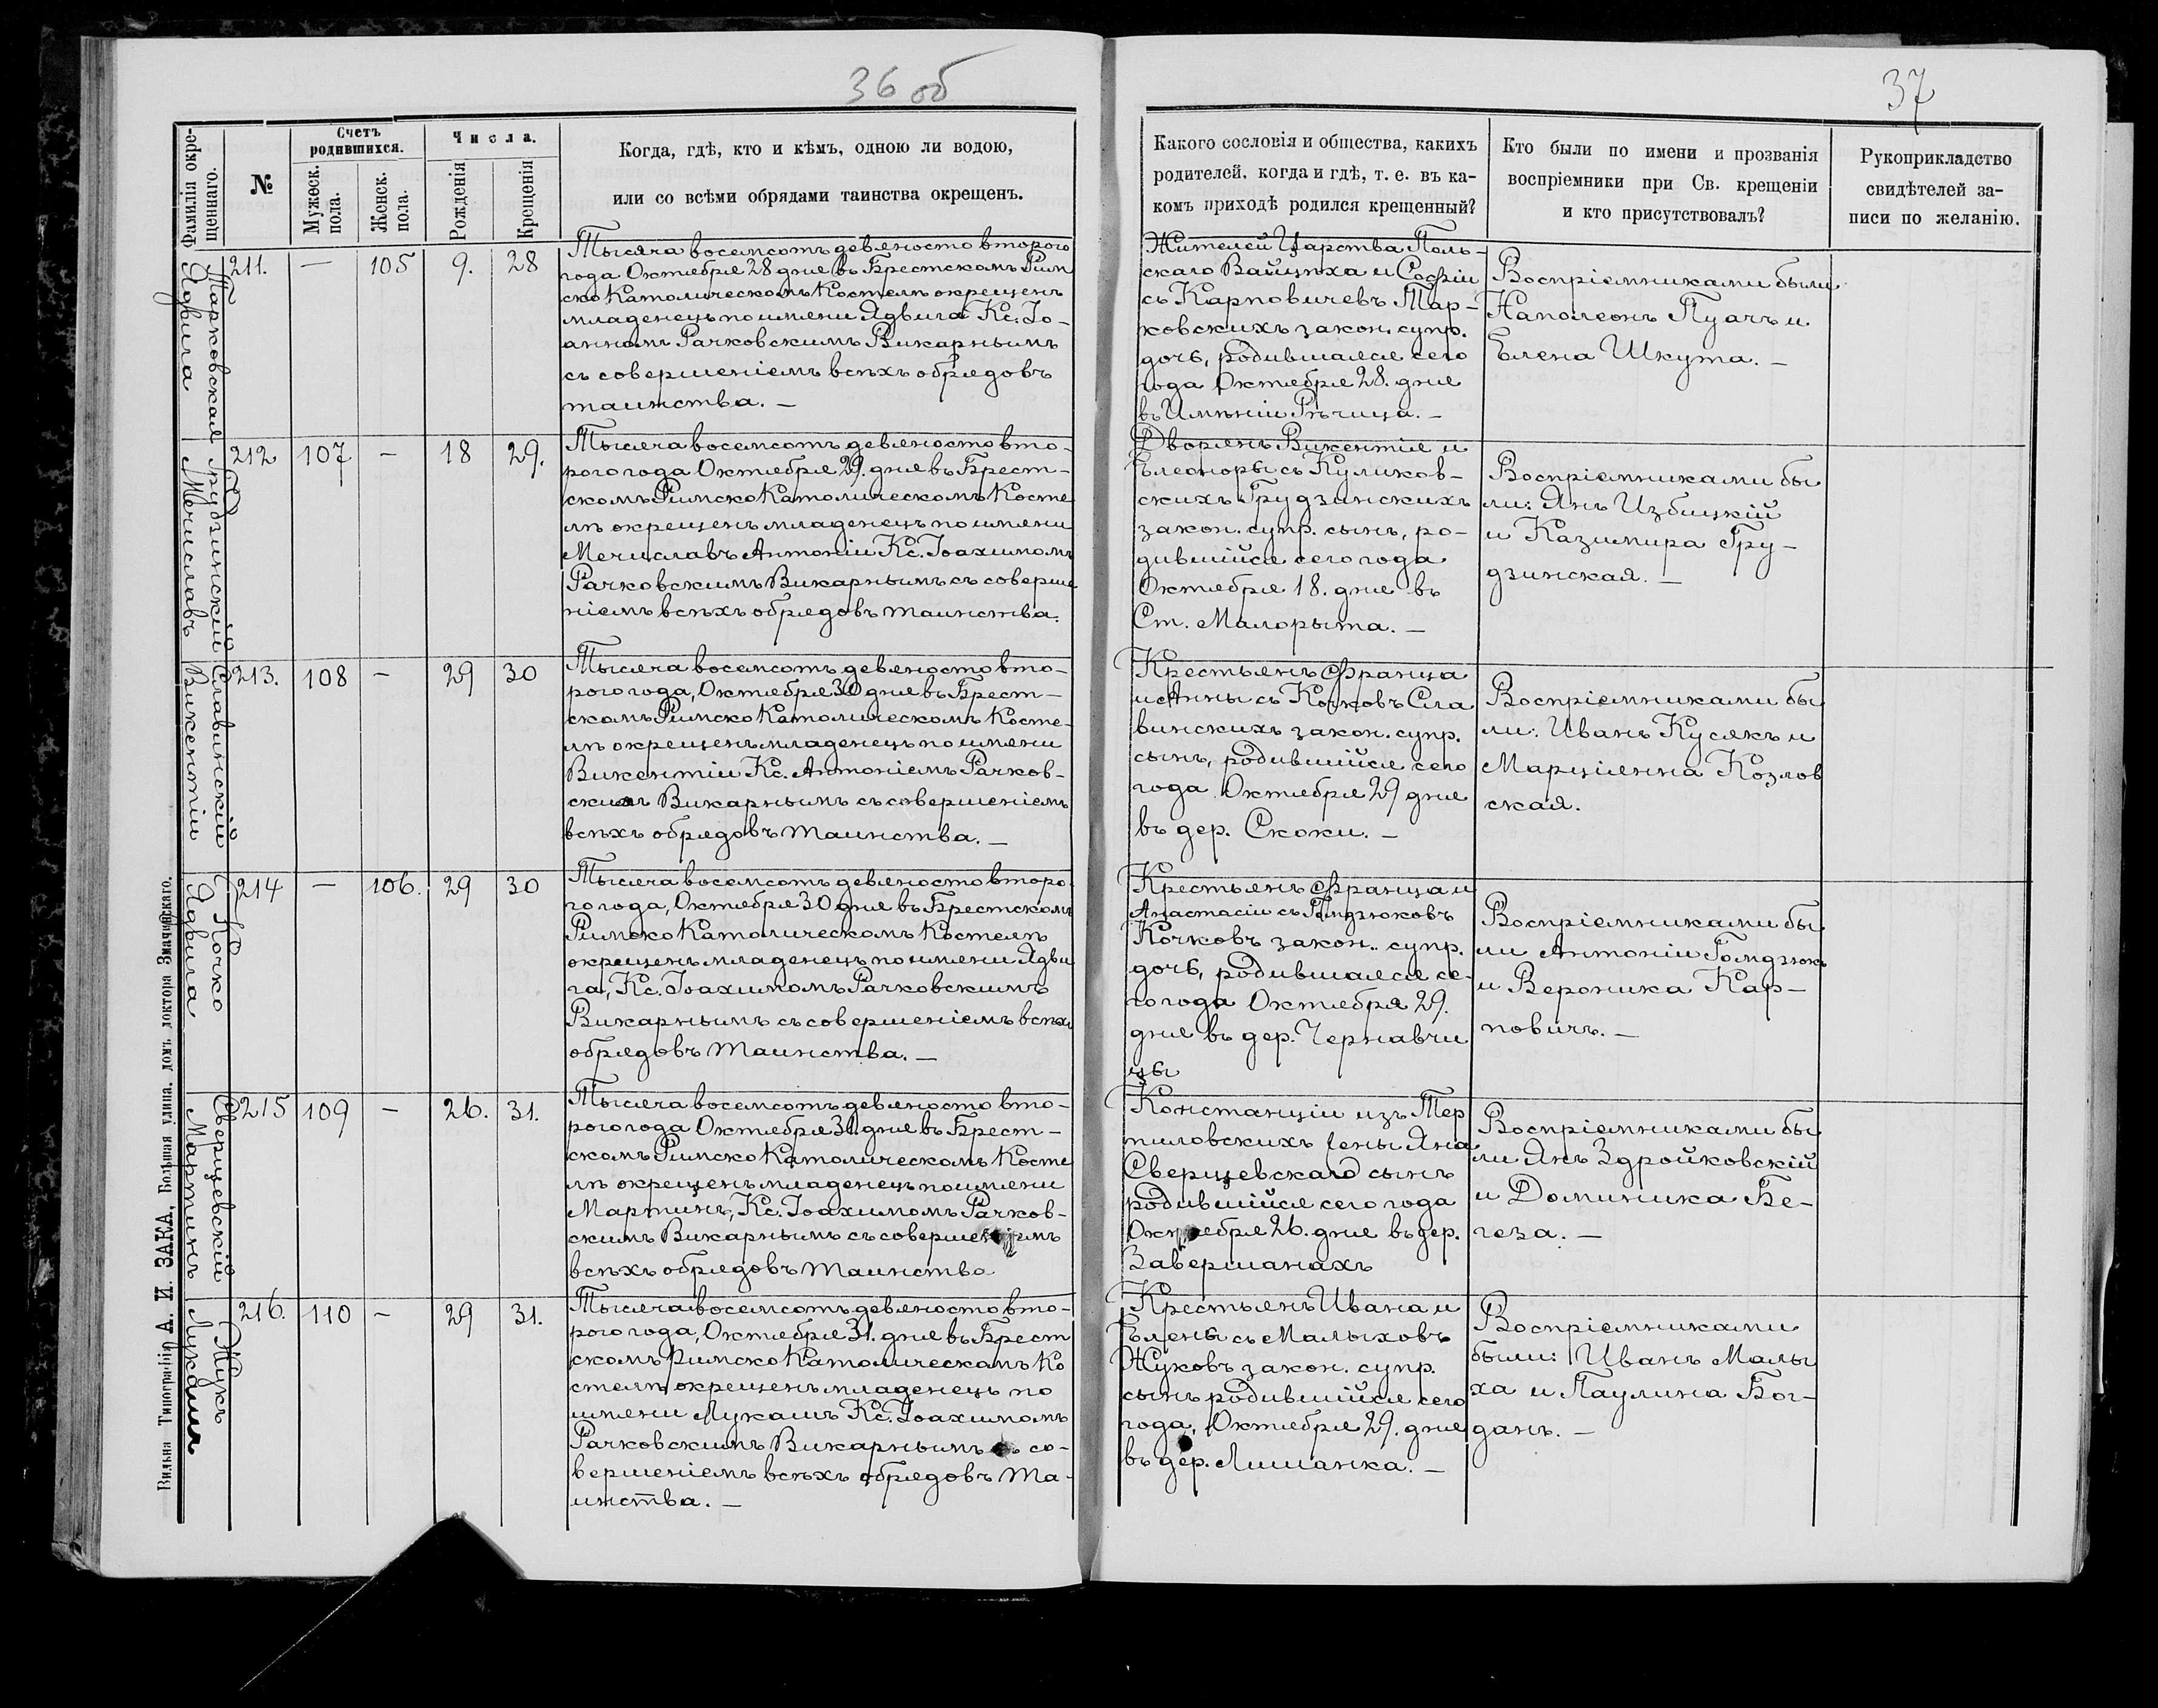 36 об
37
Фамилія окре-
щеннаго.
№
Счетъ
родившихся.
Мужеск.
пола.
Женск.
пола.
Числа.
Рожденія
Крещенія
Когда, гдѣ, кто и кѣмъ, одною ли водою,
или со всѣми обрядами таинства окрещенъ.
Какого сословія и общества, какихъ
родителей, когда и гдѣ, т. е. въ ка-
комъ приходѣ родился крещенный?
Кто были по имени и прозванія
воспріемники при Св. крещеніи
и кто присутствовалъ?
Рукоприкладство
свидѣтелей за-
писи по желанію.
Тарковская
Ядвига
211. — 105 9. 28
Тысяча восемсотъ девяносто второго
года Октября 28 дня въ Брестскомъ Рим
ско Католическомъ Костелѣ окрещенъ
младенецъ по имени Ядвига Кс. Іо-
анномъ Рачковскимъ Викарнымъ
съ совершеніемъ всѣхъ обрядовъ
таинства. —
Жителей Царства Поль-
скаго Войцѣха и Софіи
съ Карповичевъ Тар-
ковскихъ закон. супр.
дочь, родившаяся сего
года Октября 28. дня
въ Имѣніи Рѣчица. —
Воспріемниками были
Наполеонъ Пуачъ и
Елена Шкута. —
Грудзинскій
Мечиславъ
212 107 — 18 29.
Тысяча восемсотъ девяносто вто-
рого года Октября 29. дня въ Брест-
скомъ Римско Католическомъ Косте
лѣ окрещенъ младенецъ по имени
Мечиславъ Антоніи Кс. Іоахимомъ
Рачковскимъ Викарнымъ съ соверше
ніемъ всѣхъ обрядовъ таинства.
Дворянъ Викентія и
Елеоноры съ Куликов-
скихъ Грудзинскихъ
закон. супр. сынъ, ро-
дившійся сего года
Октября 18. дня въ
Ст. Малорыта. —
Воспріемниками бы
ли: Янъ Избицкій
и Казимира Гру-
дзинская. —
Славинскій
Викентіи
213. 108 — 29 30
Тысяча восемсотъ девяносто вто-
рого года, Октября 30 дня въ Брест-
скомъ Римско Католическомъ Косте-
лѣ окрещенъ младенецъ по имени
Викентіи Кс. Антоніемъ Рачков-
скимъ Викарнымъ съ совершеніемъ
всѣхъ обрядовъ таинства. —
Крестьянъ Франца
и Анны съ Кочковъ Сла
винскихъ закон. супр.
сынъ, родившійся сего
года Октября 29 дня
въ дер. Скоки. —
Воспріемниками бы
ли: Иванъ Кусякъ и
Марціянна Козлов
ская.
Кочко
Ядвига
214 — 106. 29 30
Тысяча восемсотъ девяносто второ
го года, Октября 30 дня въ Брестскомъ
Римско Католическомъ Костелѣ
окрещенъ младенецъ по имени Ядви
га, Кс. Іоахимомъ Рачковскимъ
Викарнымъ съ совершеніемъ всѣхъ
обрядовъ таинства. —
Крестьянъ Франца и
Анастасіи съ
Кочковъ закон. супр.
дочь, родившаяся се-
го года Октября 29.
дня въ дер. Чернавчи
цы
Воспріемниками бы
ли Антоніи
и Вероника Кар-
повичъ. —
Сверщевскій
Мартинъ
215 109 — 26. 31.
Тысяча восемсотъ девяносто вто-
рого года Октября 31. дня въ Брест-
скомъ Римско Католическомъ Косте
лѣ окрещенъ младенецъ по имени
Мартинъ, Кс. Іоахимомъ Рачков-
скимъ Викарнымъ съ совершеніемъ
всѣхъ обрядовъ таинства
Констанціи изъ Тер
пиловскихъ жены Яна
Сверщевскаго сынъ
родившійся сего года
Октября 26. дня въ дер.
Завершанахъ
Воспріемниками бы
ли Янъ Здройковскій
и Доминика Бе-
геза. —
Жукъ
Лукашъ
216. 110 — 29 31.
Тысяча восемсотъ девяносто вто-
рого года, Октября 31. дня въ Брест
скомъ Римско Католическомъ Ко
стелѣ окрещенъ младенецъ по
имени Лукашъ Кс. Іоахимомъ
Рачковскимъ Викарнымъ съ со-
вершеніемъ всѣхъ обрядовъ та-
инства. —
Крестьянъ Ивана и
Елены съ Малыховъ
Жуковъ закон. супр.
сынъ родившійся сего
года, Октября 29. дня
въ дер. Лишанка. —
Воспріемниками
были: Иванъ Малы
ха и Паулина Бог-
данъ. —
Вильна Типографія А. И. ЗАКА, Большая улица, домъ доктора Змачинскаго.